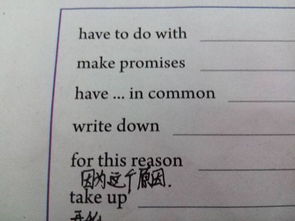 have to do with
make promises
have ... in common
write down
for this reason
因为这个原因.
take up